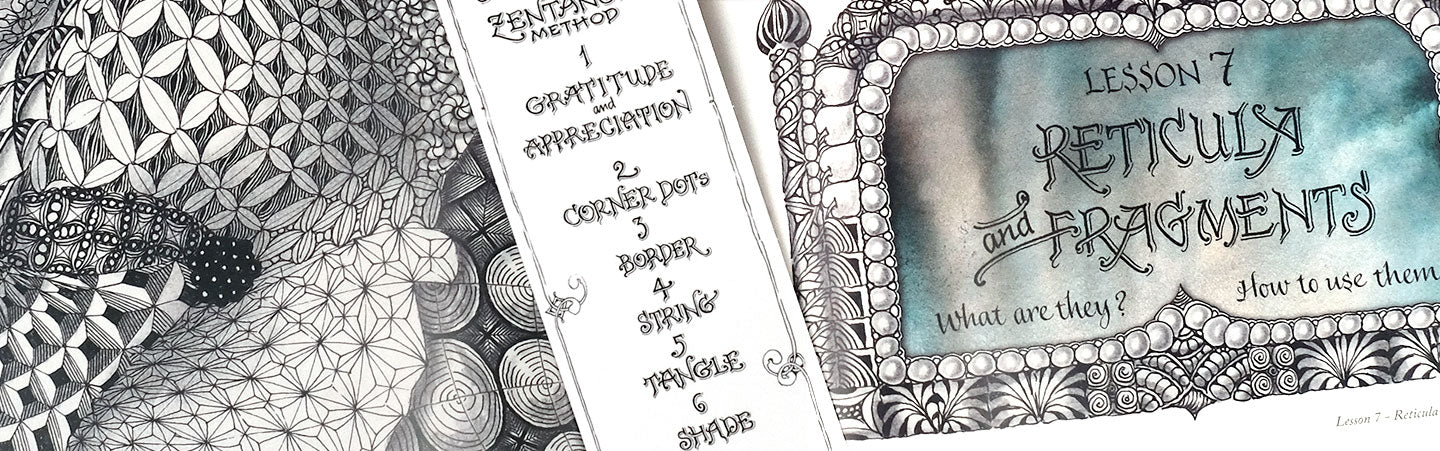 ZENTANGLE
METHOD
1
GRATITUDE
and
APPRECIATION
2
CORNER DOTs
3
BORDER
4
STRING
5
TANGLE
6
SHADE
LESSON 7
RETICULA
and FRAGMENTS
What are they?
How to use them
Lesson 7 - Reticula